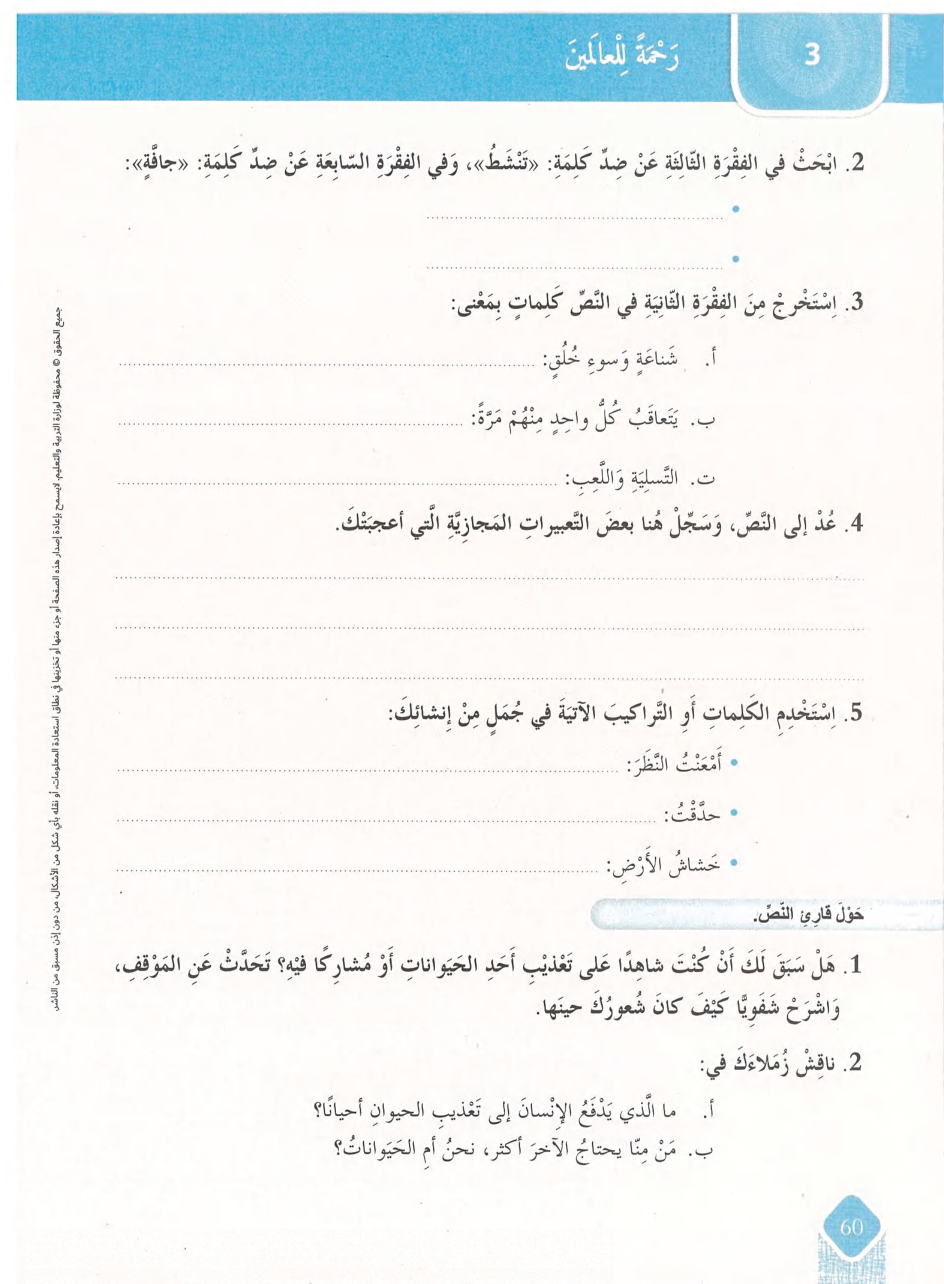 3
رَحْمَةً لِلْعالَمينَ
2. ابْحَثْ في الفِقْرَةِ الثّالِثَةِ عَنْ ضِدِّ كَلِمَةِ: «تَنْشَطُ»، وَفي الفِقْرَةِ السّابِعَةِ عَنْ ضِدِّ كَلِمَةِ: «جافَّةٍ»:
•
•
3. اِسْتَخْرِجْ مِنَ الفِقْرَةِ الثّانِيَةِ في النَّصِّ كَلِماتٍ بِمَعْنى:
أ. شَناعَةٍ وَسوءِ خُلُقٍ:
ب. يَتَعاقَبُ كُلُّ واحِدٍ مِنْهُمْ مَرَّةً:
ت. التَّسلِيَةِ وَاللَّعِبِ:
4. عُدْ إلى النَّصِّ، وَسَجِّلْ هُنا بعضَ التَّعبيراتِ المَجازِيَّةِ الَّتي أعجبَتْكَ.
5. اِسْتَخْدِمِ الكَلِماتِ أَوِ التَّراكيبَ الآتيَةَ في جُمَلٍ مِنْ إنشائِكَ:
• أَمْعَنْتُ النَّظَرَ:
• حدَّقْتُ:
• خَشاشُ الأَرْضِ:
حَوْلَ قارِئِ النّصِّ.
1. هَلْ سَبَقَ لَكَ أَنْ كُنْتَ شاهِدًا عَلى تَعْذيْبِ أَحَدِ الحَيَواناتِ أَوْ مُشارِكًا فيْهِ؟ تَحَدَّثْ عَنِ المَوْقِفِ،
وَاشْرَحْ شَفَوِيًّا كَيْفَ كانَ شُعورُكَ حينَها.
2. ناقِشْ زُمَلاءَكَ في:
أ. ما الَّذي يَدْفَعُ الإِنْسانَ إلى تَعْذيبِ الحيوانِ أحيانًا؟
ب. مَنْ مِنّا يحتاجُ الآخرَ أكثر، نحنُ أمِ الحَيَواناتُ؟
جميع الحقوق © محفوظة لوزارة التربية والتعليم. لايسمح بإعادة إصدار هذه الصفحة أو جزء منها أو تخزينها في نطاق استعادة المعلومات، أو نقله بأي شكل من الأشكال، من دون إذن مسبق من الناشر.
60